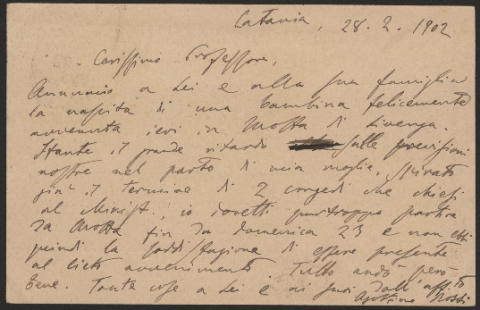 Catania, 28.2.1902
Carissimo Professore,
Annuncio a Lei e alla sua famiglia
la nascita di una bambina felicemente
avvenuta ieri in Motta di Livenza.
Stante il grande ritardo sulle previsioni
nostre nel parto di mia moglie, spirato
già il termine di 2 congedi che chiesi
al Minist., io dovetti purtroppo partire
da Motta fin da domenica 23 e non ebbi
quindi la soddisfazione di essere presente
al lieto avvenimento. Tutto andò però
bene. Tante cose a Lei e ai suoi dall'aff.mo
Agostino Rossi